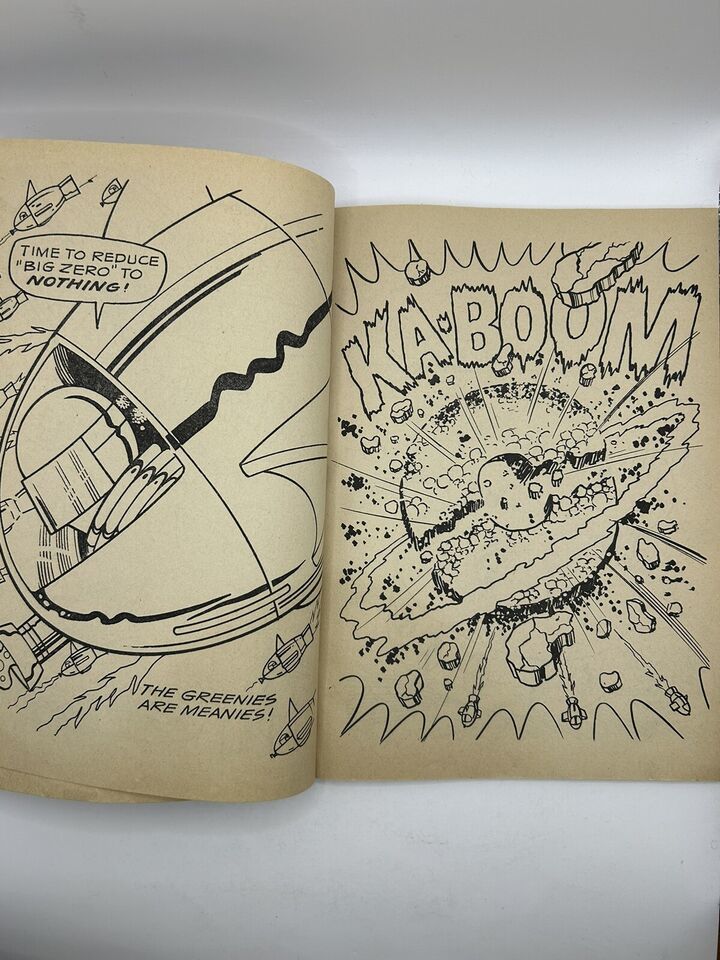 TIME TO REDUCE
"BIG ZERO" TO
NOTHING!
THE GREENIES
ARE MEANIES!
KA-BOOM